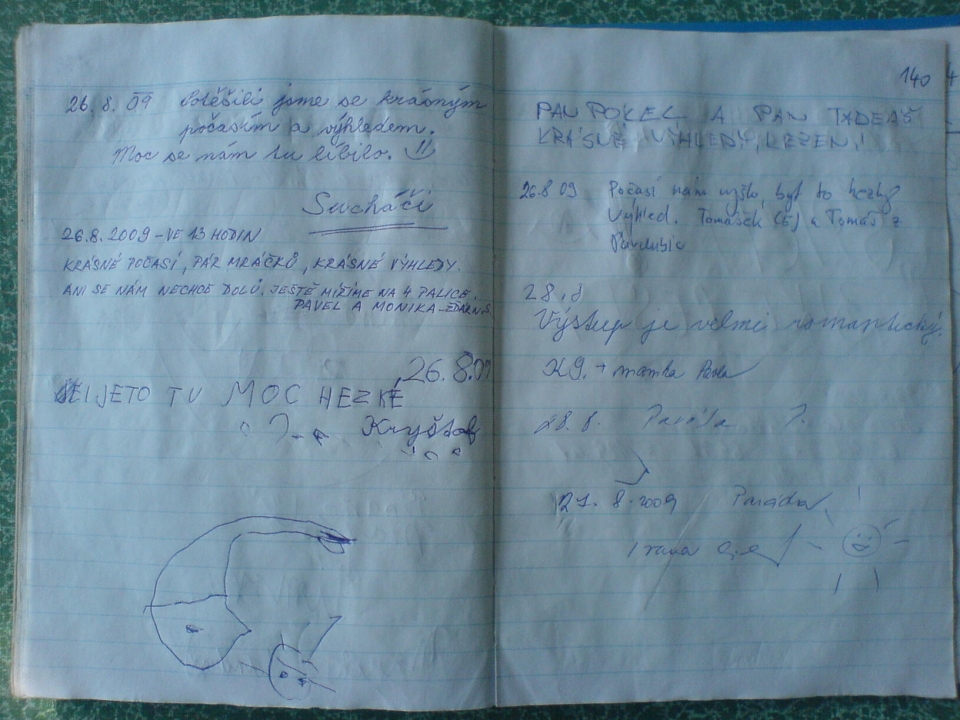 26. 8. 09 Potěšili jsme se krásným
počasím a výhledem.
Moc se nám tu líbilo.
Sucháči
26.8.2009 - VE 13 HODIN
KRÁSNÉ POČASÍ, PÁR MRÁČKŮ, KRÁSNÉ VÝHLEDY.
ANI SE NÁM NECHCE DOLŮ. JEŠTĚ MÍŘÍME NA 4 PALICE.
PAVEL A MONIKA
26.8.09
JE TO TU MOC HEZKÉ
Kryštof
140
PAN POKEL A PAN TADEÁŠ
KRÁSNÉ VÝHLEDY,
26.8 09 Počasí nám vyšlo, byl to hezký
Výhled. Tomášek (5) a Tomáš z
Pardubic
28.8
Výstup je velmi romantický.
+ mamka
28.8.
27. 8. 2009 Paráda